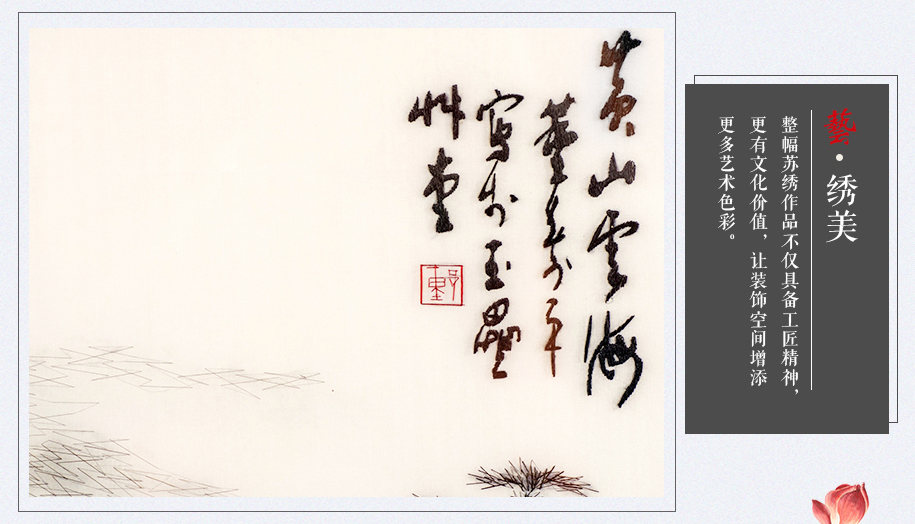 藝·绣美
整幅苏绣作品不仅具备工匠精神，
更有文化价值，让装饰空间增添
更多艺术色彩。
黄山雲海
董寿平
寫於玉壘
艸堂